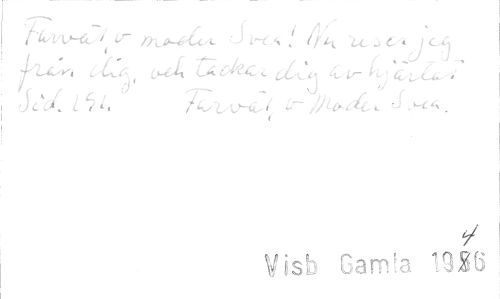 Farväl, o moder Svea! Nu reser jeg
från dig, och tackar dig av hjärtat
Sid. 191. Farväl, o Moder Svea.
4
Visb Gamla 1986